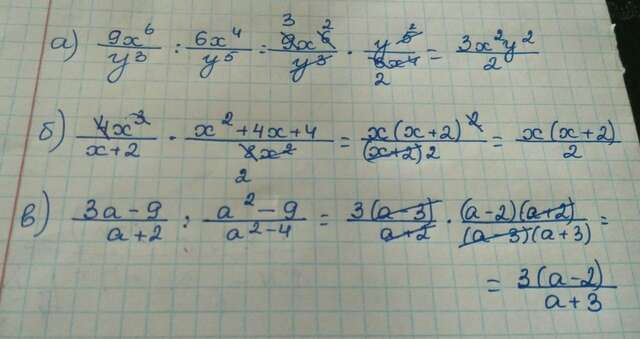 а) 9x⁶/y³ : 6x⁴/y⁵ = 9x⁶/y³ · y⁵/6x⁴ = 3x²y²/2
б) 4x³/x+2 · x²+4x+4/8x² = x(x+2)²/(x+2)2 = x(x+2)/2
в) 3a-9/a+2 : a²-9/a²-4 = 3(a-3)/a+2 · (a-2)(a+2)/(a-3)(a+3) =
= 3(a-2)/a+3